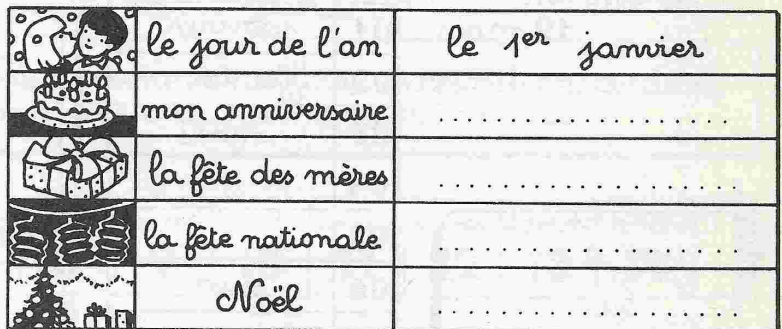 le jour de l'an le 1er janvier
mon anniversaire ....................
la fête des mères ....................
la fête nationale ....................
Noël ....................